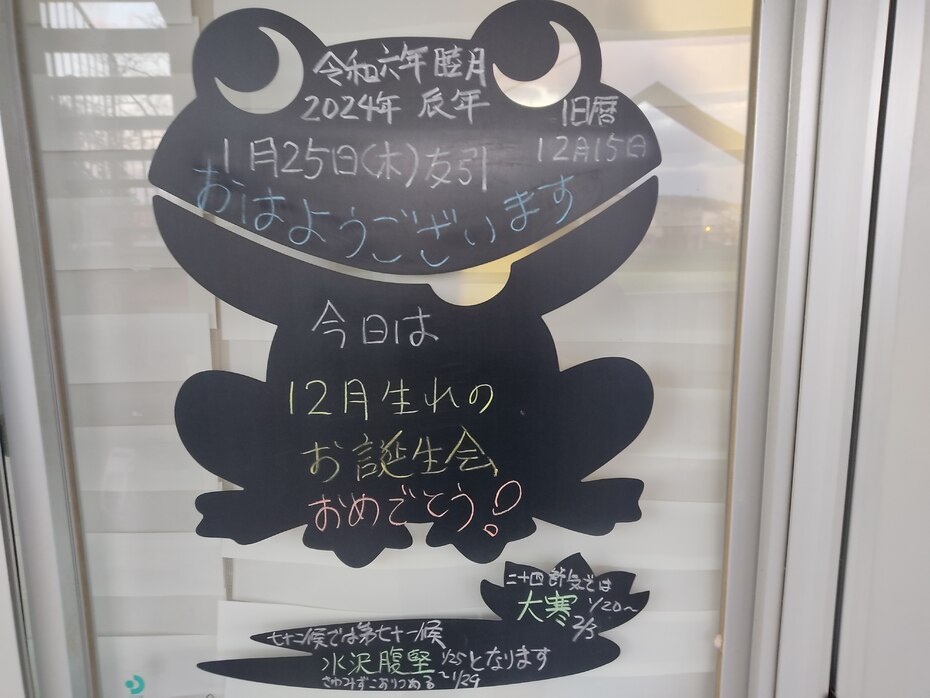 令和六年 睦月
2024年 辰年
旧暦
12月15日
1月25日(木)友引
おはようございます
今日は
12月生れの
お誕生会
おめでとう!
二十四節気では
大寒 1/20〜
2/3
七十二候では第七十一候
水沢腹堅 1/25となります
さわみずこおりつめる 〜1/29